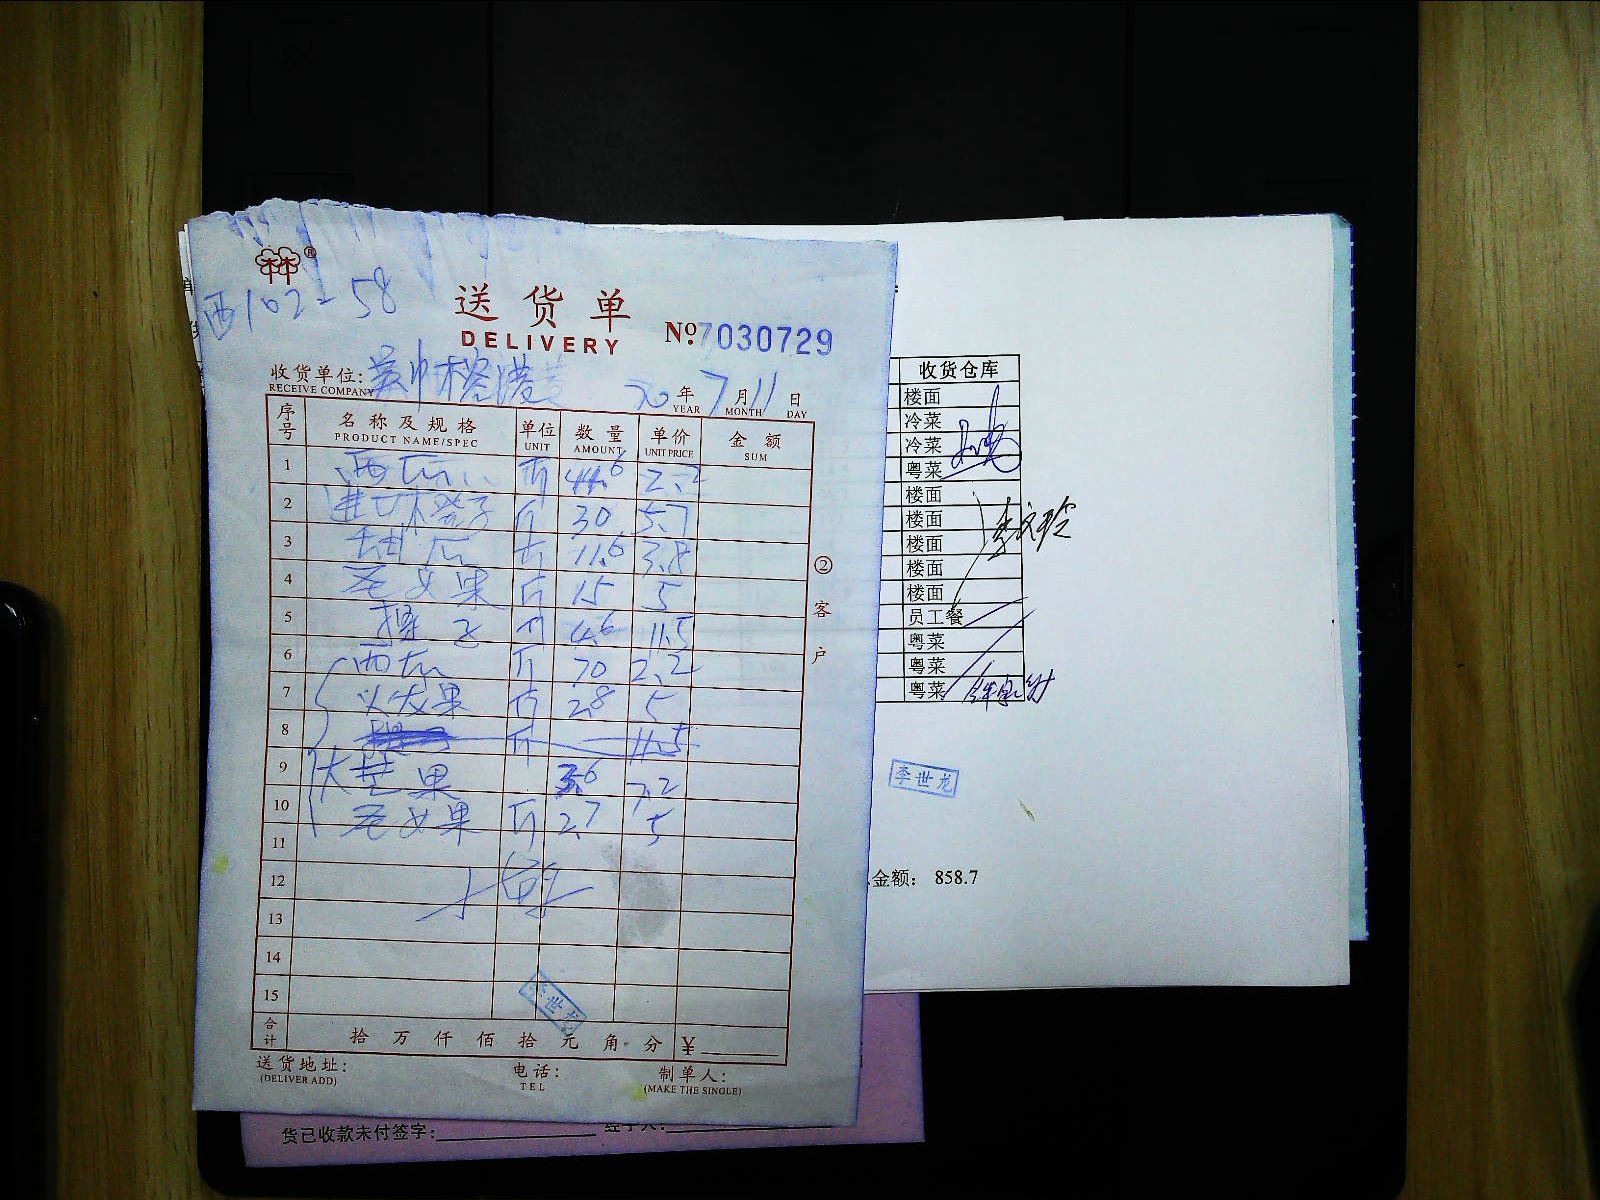 ®
西102=58
送货单
DELIVERY
No:7030729
收货单位:
RECEIVE COMPANY
20年7月11日
YEAR MONTH DAY
序号 名称及规格 单位 数量 单价 金额
PRODUCT NAME/SPEC UNIT AMOUNT UNIT PRICE SUM
1 西瓜 斤 44.6 2.2
2 进口木登子 斤 30 5.7
3 甜瓜 斤 11.6 3.8
4 圣女果 斤 15 5
5 斤 4.6 11.5
6 西瓜 斤 70 2.2
7 火龙果 斤 2.8 5
8 斤 11.5
9 大芒果 3.6 7.2
10 圣女果 斤 2.7 5
11
12
13
14
15
合计 拾万仟佰拾元角分 ¥
李世龙
②客户
送货地址:
(DELIVER ADD)
电话:
TEL
制单人:
(MAKE THE SINGLE)
收货仓库
楼面
冷菜
冷菜
粤菜
楼面
楼面
楼面
楼面
楼面
员工餐
粤菜
粤菜
粤菜
李文玲
李世龙
金额: 858.7
货已收款未付签字:
经手人: